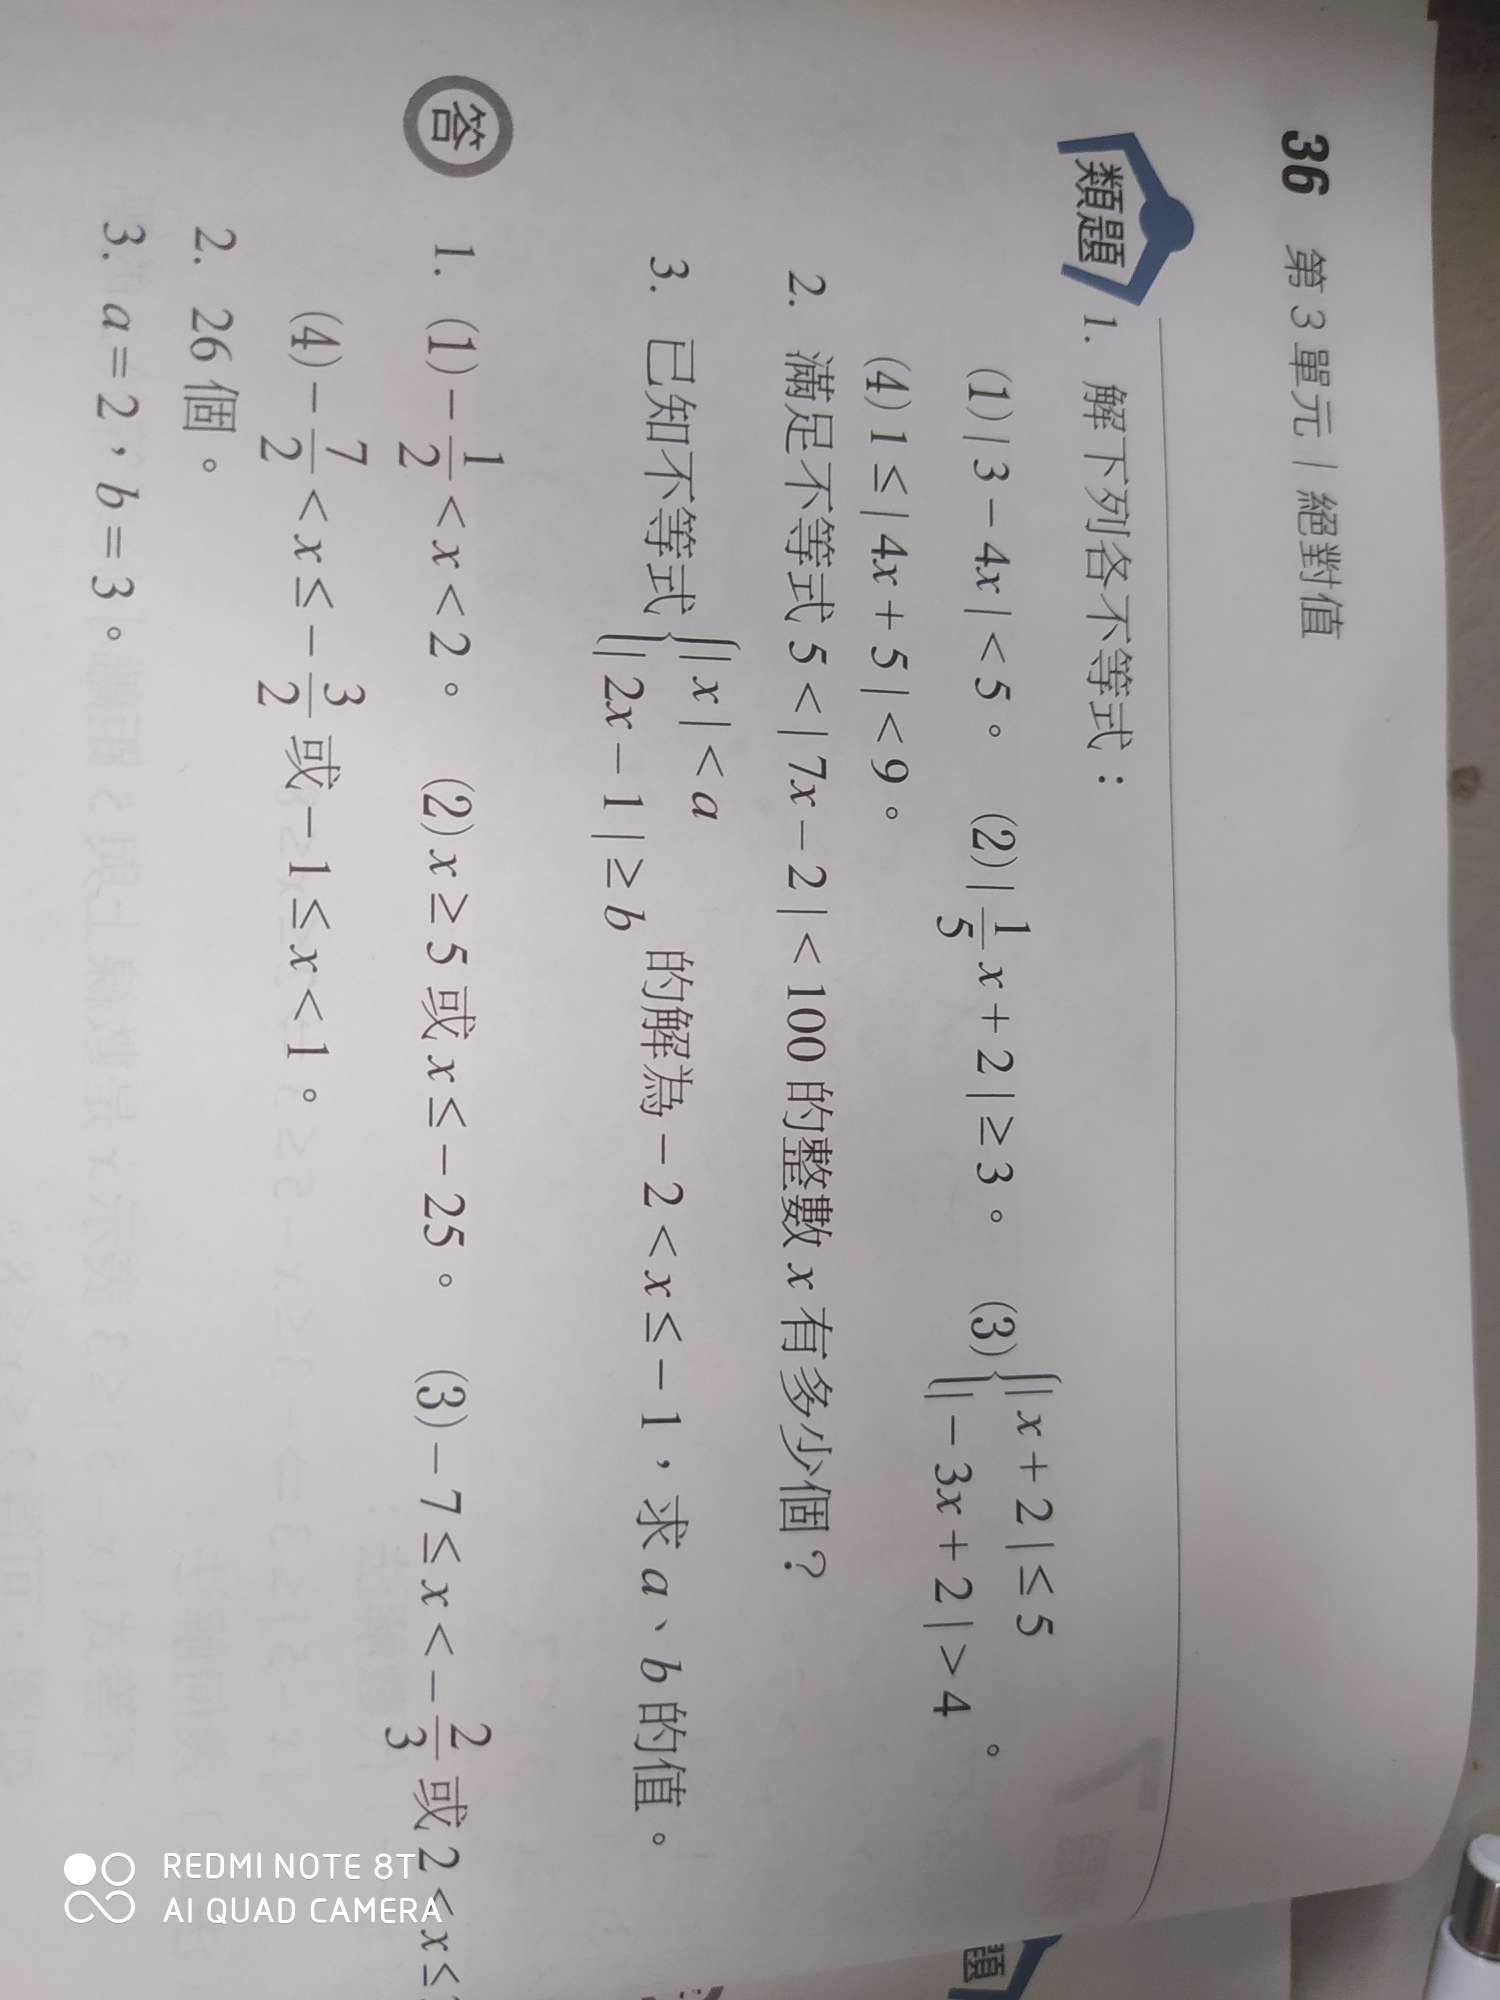 36 第3單元 | 絕對值
類題
1. 解下列各不等式：
(1) | 3 − 4x | < 5。 (2) | 1/5 x + 2 | ≥ 3。 (3) { | x + 2 | ≤ 5
| − 3x + 2 | > 4 。
(4) 1 ≤ | 4x + 5 | < 9。
2. 滿足不等式 5 < | 7x − 2 | < 100 的整數 x 有多少個？
3. 已知不等式 { | x | < a
| 2x − 1 | ≥ b 的解為 − 2 < x ≤ − 1，求 a、b 的值。
答
1. (1) − 1/2 < x < 2。 (2) x ≥ 5 或 x ≤ − 25。 (3) − 7 ≤ x < − 2/3 或 2 < x ≤
(4) − 7/2 < x ≤ − 3/2 或 − 1 ≤ x < 1。
2. 26 個。
3. a = 2，b = 3。
題
REDMI NOTE 8T
AI QUAD CAMERA